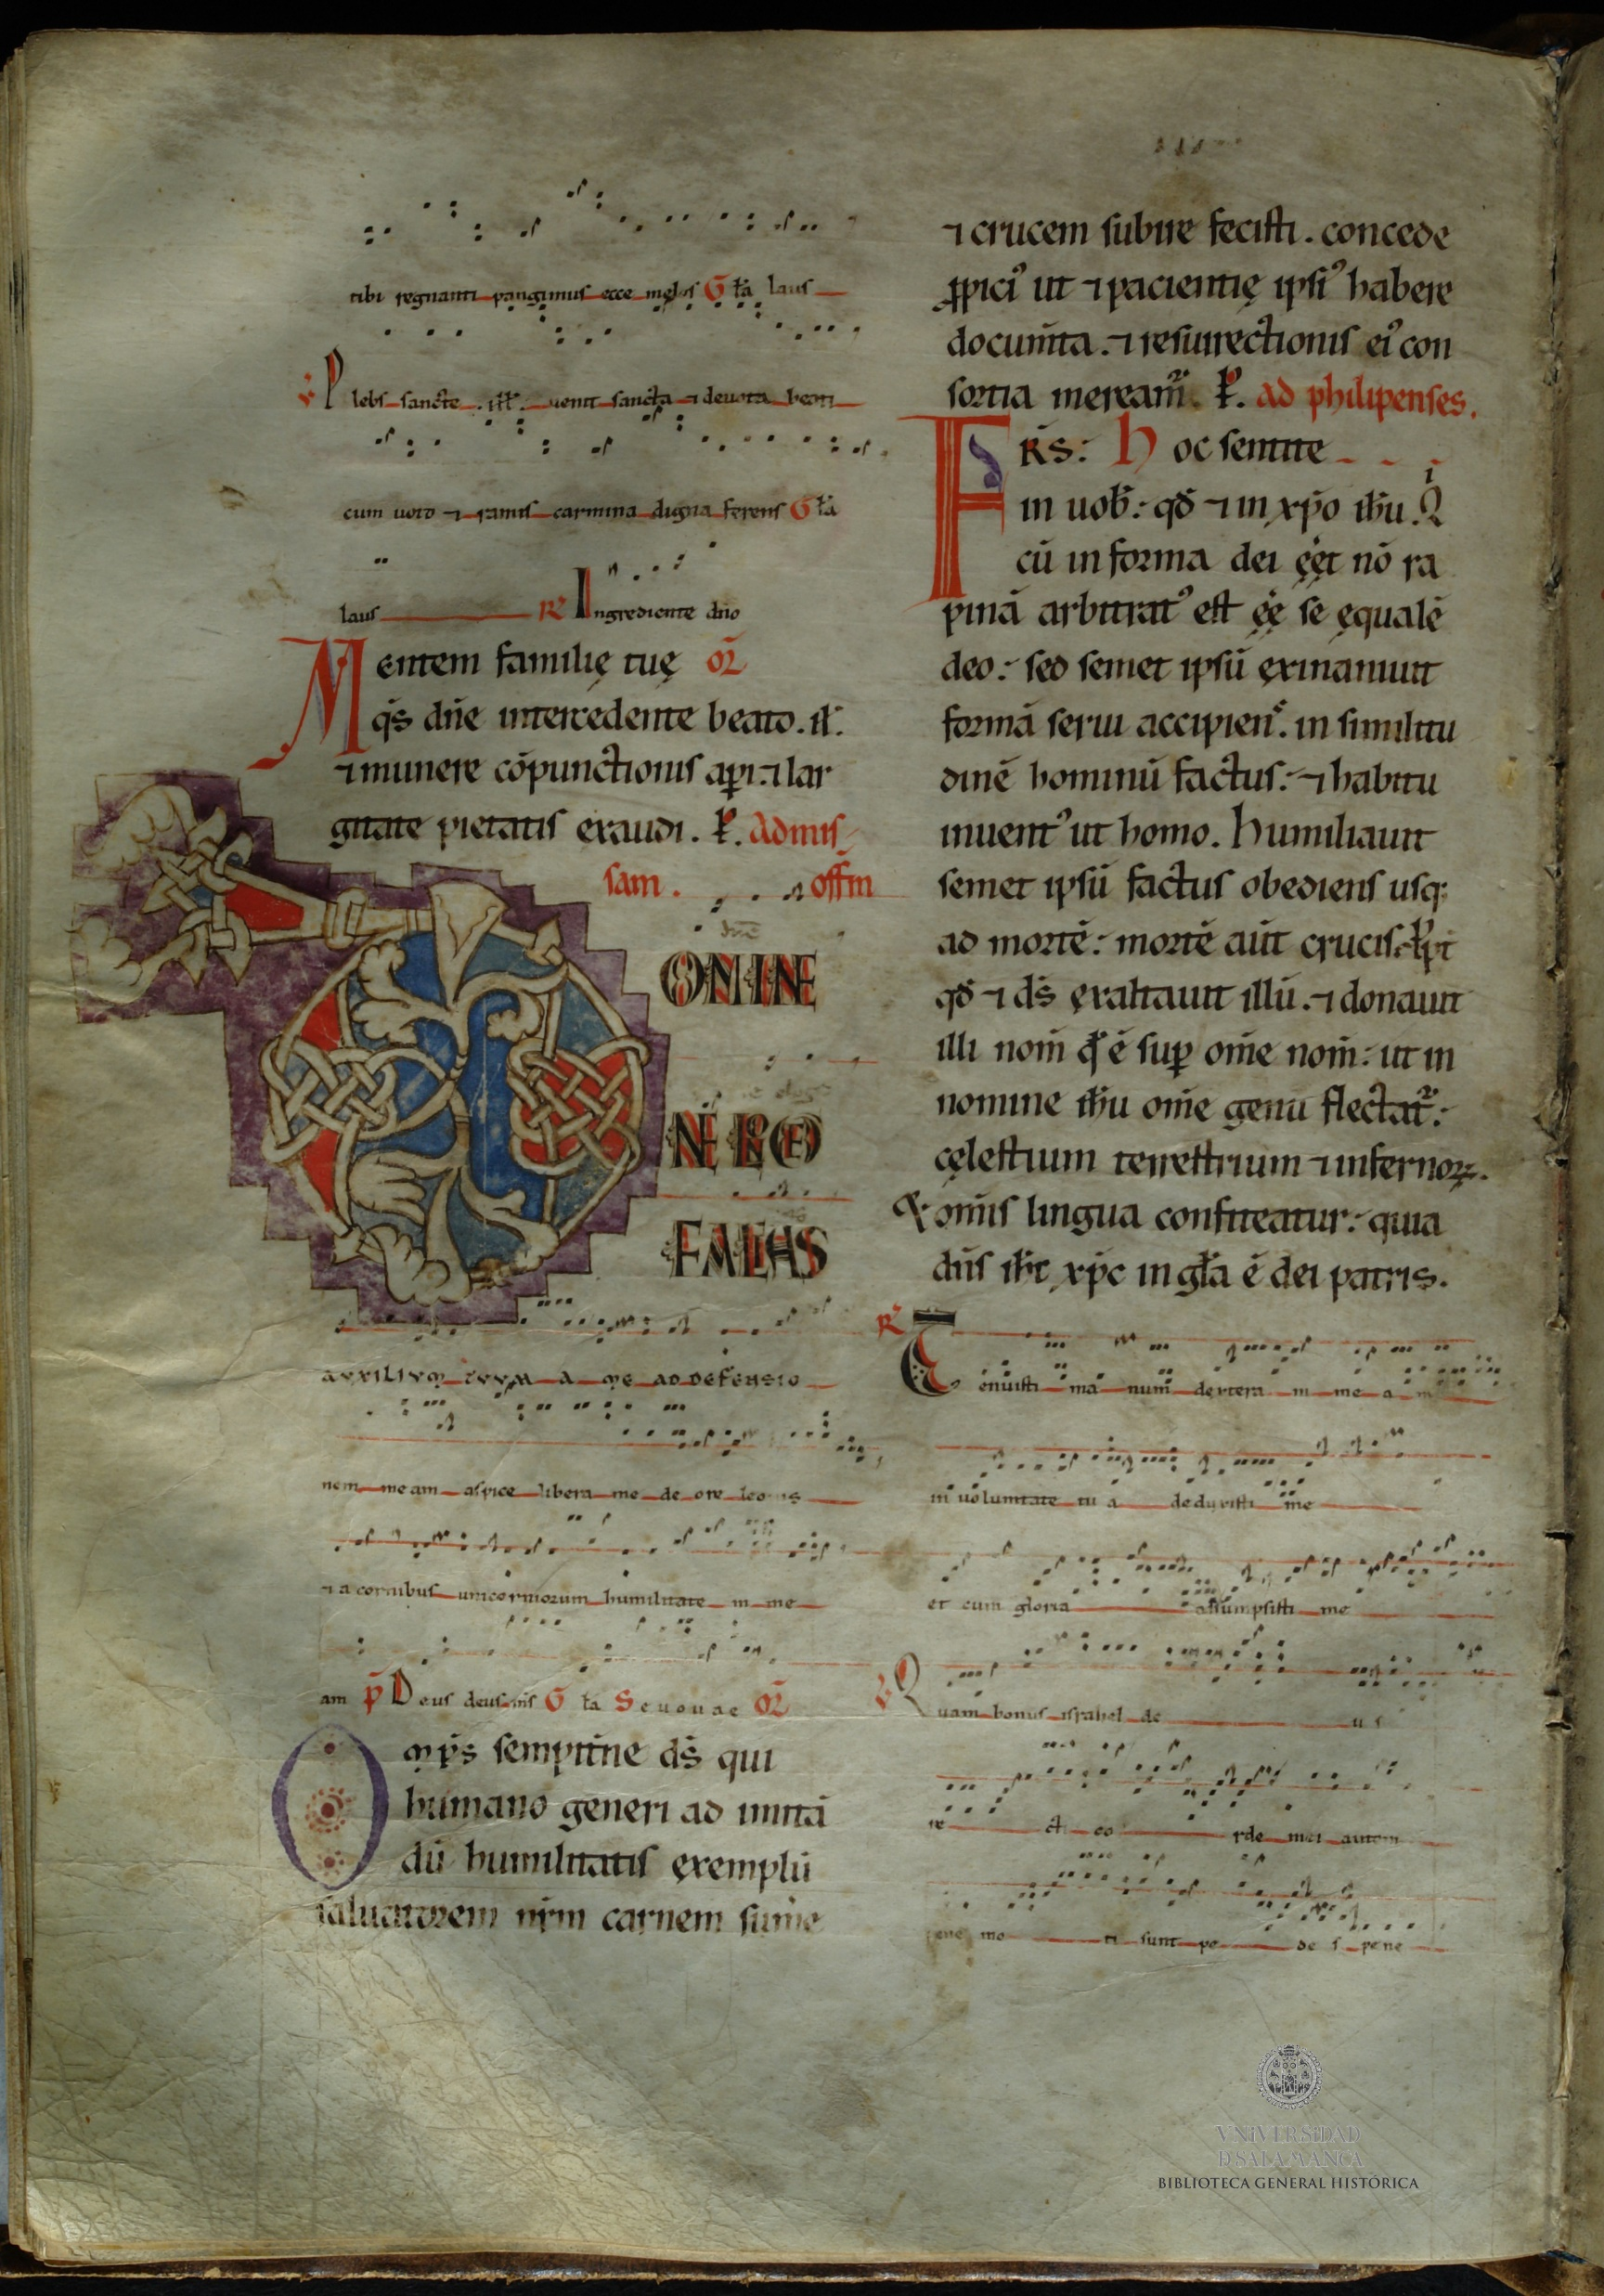 tibi regnanti pangimus ecce melos Gl̄a laus
V Plebs sancte .ill. uenit sancta ⁊ deuota beati
cum uoto ⁊ ramis carmina digna ferens Gl̄a
laus R Ingrediente dn̄o
Mentem familię tuę OR̄
q̄s dn̄e intercedente beato .ił.
⁊ munere cōpunctionis aꝑi ⁊ lar
gitate pietatis exaudi. k̄. Admis
sam. offm
dn̄e
DOMINE
NE LO
N E
FACIAS
AVXILIVM TVVM A ME AD DEFENSIO
nem meam aspice libera me de ore leonis
⁊ a cornibus unicorniorum humilitate m me
am p̄ Deus deus m̄s Ḡ l̄a Seuouae OR̄
Omp̄s sempit̄ne ds̄ qui
humano generi ad imitā
dū humilitatis exemplū
saluatorem nr̄m carnem sume
⁊ crucem subire fecisti. concede
ꝓpiciꝰ ut ⁊ pacientię ipsiꝰ habere
documīta. ⁊ resurrectionis eiꝰ con
sortia meream̄. k̄. ad philipenses.
FRS̄: Hoc sentite
in uob̄: qđ ⁊ in xp̄o ih̄u. Qi
cū in forma dei ęēt nō ra
pinā arbitratꝰ est ęē se ęqualē
deo: sed semet ipsū exinaniuit
formā serui accipiens. in similitu
dinē hominū factus: ⁊ habitu
inuentꝰ ut homo. Humiliauit
semet ipsū factus obediens usq;
ad mortē: mortē aūt crucis. ꝓpt̄
qđ ⁊ ds̄ exaltauit illū. ⁊ donauit
illi nom̄ qđ ē suꝑ om̄e nom̄: ut in
nomine ih̄u om̄e genu flectat̄:
cęlestium terrestrium ⁊ infernoꝝ.
& om̄is lingua confiteatur: quia
dn̄s ih̄c xp̄c in gl̄a ē dei patris.
R Tenuisti manum dextera m me a m
in uoluntate tu a deduxisti me
et cum gloria assumpsisti me
V Quam bonus israhel de us
re cti co rde mei autem
pene mo ti sunt pe de s pene
VNIVERSIDAD
D SALAMANCA
BIBLIOTECA GENERAL HISTÓRICA